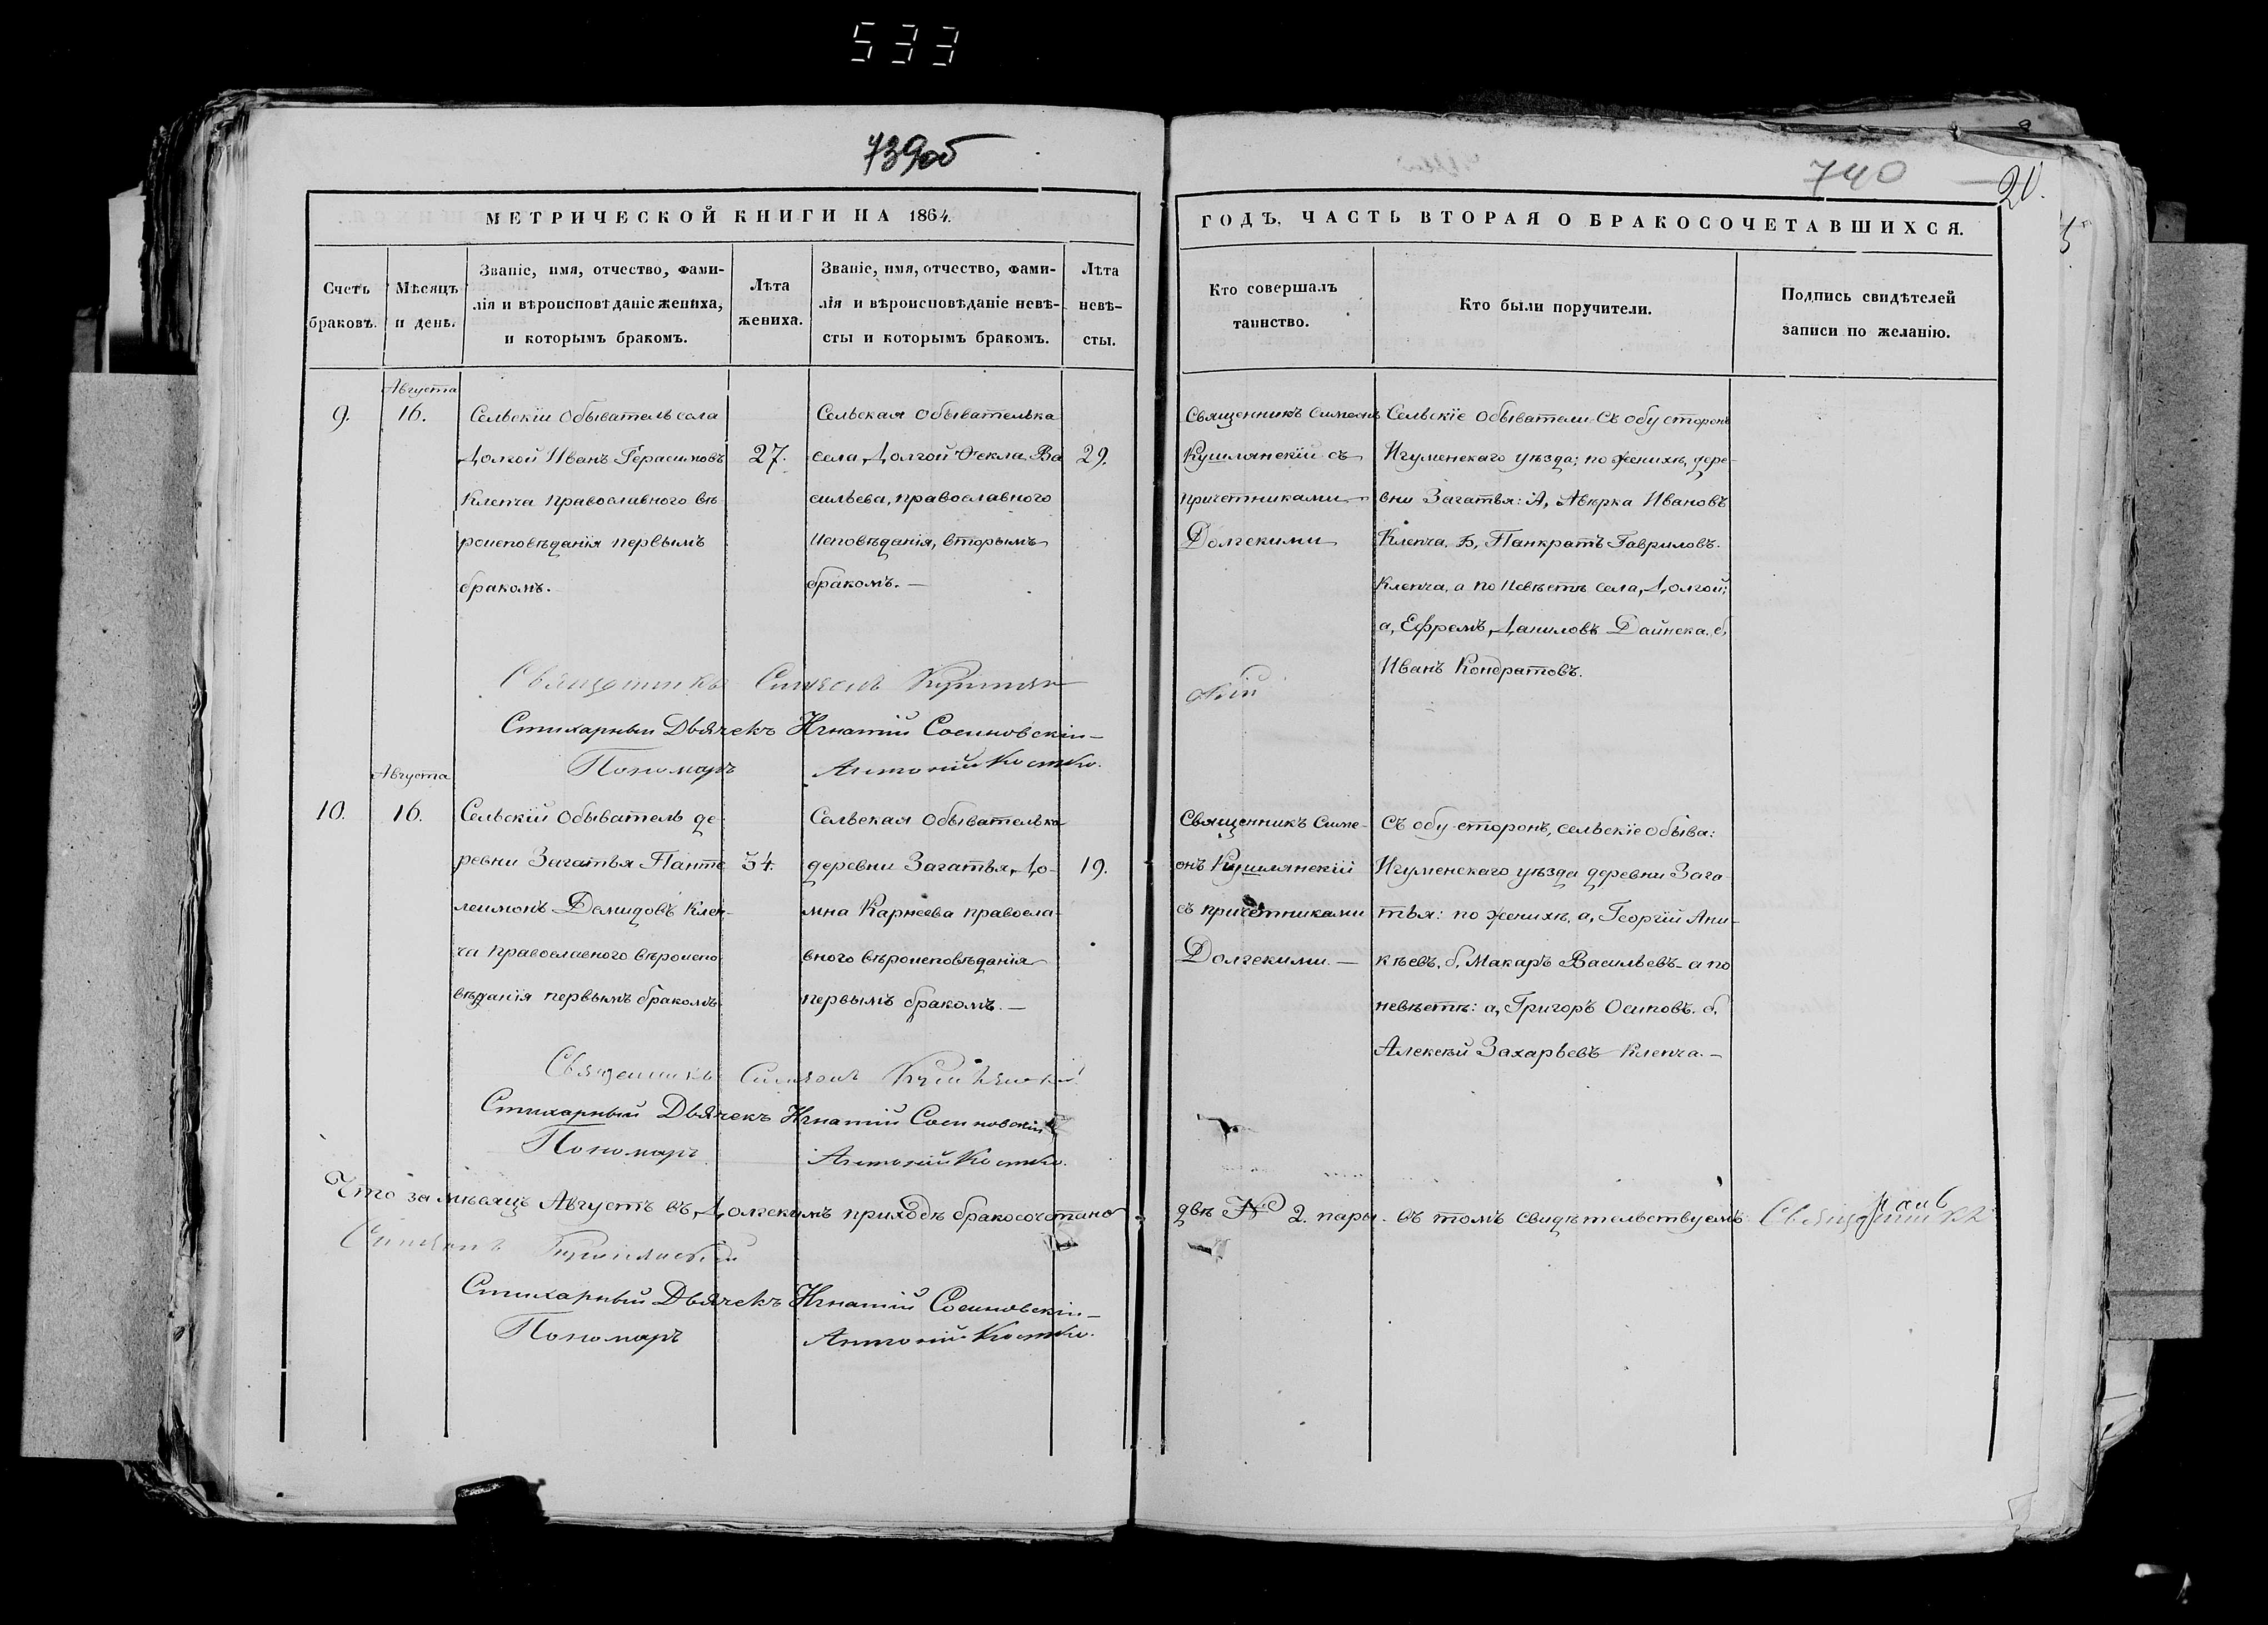 533
739об
740
20.
МЕТРИЧЕСКОЙ КНИГИ НА 1864.
ГОДЪ, ЧАСТЬ ВТОРАЯ О БРАКОСОЧЕТАВШИХСЯ.
Счетъ
браковъ.
Мѣсяцъ
и день.
Званіе, имя, отчество, фами-
лія и вѣроисповѣданіе жениха,
и которымъ бракомъ.
Лѣта
жениха.
Званіе, имя, отчество, фами-
лія и вѣроисповѣданіе невѣ-
сты и которымъ бракомъ.
Лѣта
невѣ-
сты.
Кто совершалъ
таинство.
Кто были поручители.
Подпись свидѣтелей
записи по желанію.
9.
Августа
16.
Сельскій обыватель села
Долгой Иванъ Герасимовъ
Клепча православнаго вѣ-
роисповѣданія первымъ
бракомъ.
27.
Сельская обывателька
села Долгой Ѳекла Ва
сильева, православного
исповѣданія, вторымъ
бракомъ. —
29.
Священникъ Симеонъ
Кушлянскій съ
причетниками
Долгскими
Сельскіе обыватели съ обу сторонъ
Игуменскаго уѣзда; по женихѣ, дере-
вни Загатья: А, Авѣрка Ивановъ
Клепча, Б, Панкратъ Гавриловъ.
Клепча, а по невѣстѣ села Долгой;
а, Ефремъ Даниловъ Дайнека. б,
Иванъ Кондратовъ.
Священникъ Симеонъ Кушлян
скій
Стихарный Дьячекъ Игнатій Сосиновскій
Пономарь Антоній Костко.
10.
Августа
16.
Сельскій обыватель де-
ревни Загатья Панте
леимонъ Демидовъ Клеп-
ча православного вѣроиспо
вѣданія первымъ бракомъ.
34.
Сельская обывателька
деревни Загатья, До-
мна Карнеева правосла-
вного вѣроисповѣданія
первымъ бракомъ. —
19.
Священникъ Симе-
онъ Кушлянскій
съ причетниками
Долгскими. —
Съ обу сторонъ, сельскіе обыва:
Игуменскаго уѣзда деревни Зага-
тья: по женихѣ, а, Георгій Ани-
кѣевъ, б, Макаръ Васильевъ - а по
невѣстѣ: а, Григоръ Осиповъ. б,
Алексѣй Захарьевъ Клепча. —
Священникъ Симеонъ Кушлянскій
Стихарный Дьячекъ Игнатій Сосиновскій
Пономарь Антоній Костко.
Что за мѣсяцъ Августъ въ Долгскимъ приходѣ бракосочетано
двѣ № 2. пары. въ томъ свидѣтельствуемъ Священникъ
Симеонъ Кушлянскій
Стихарный Дьячекъ Игнатій Сосиновскій
Пономарь Антоній Костко.